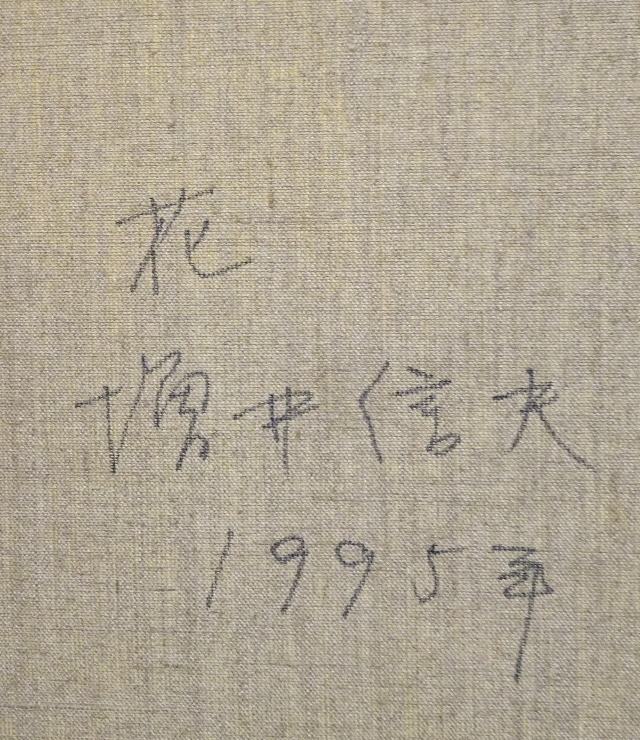 花
増井信夫
1995年